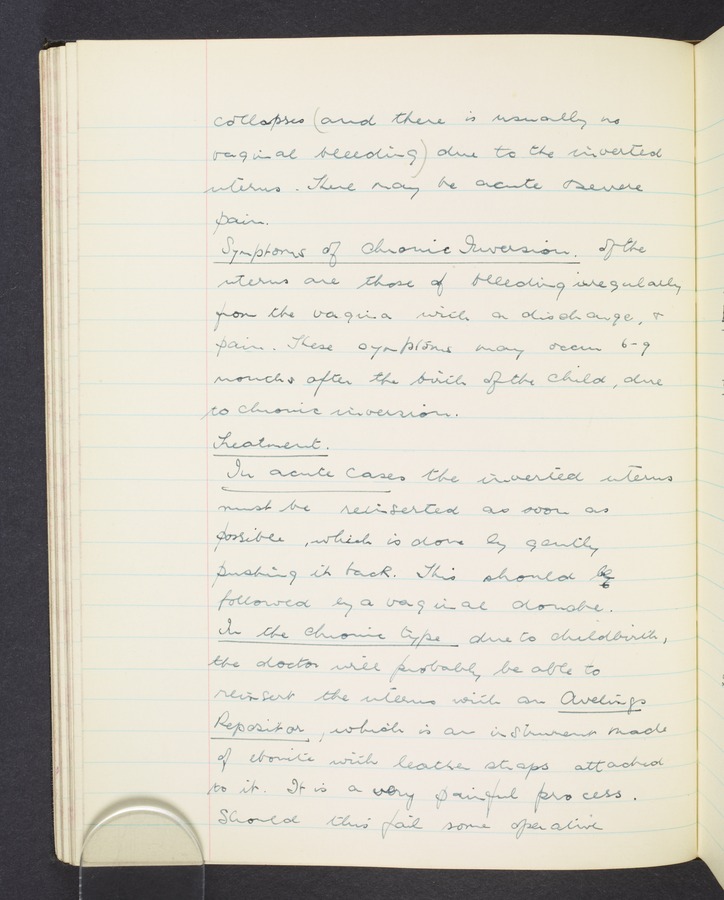 collapses (and there is usually no
vaginal bleeding) due to the inverted
uterus. There may be acute & severe
pain.
Symptoms of Chronic Inversion. of the
uterus are those of bleeding irregularly
from the vagina with a discharge, &
pain. These symptoms may occur 6-9
months after the birth of the child, due
to chronic inversion.
Treatment.
In acute cases the inverted uterus
must be reinserted as soon as
possible, which is done by gently
pushing it back. This should be
followed by a vaginal douche.
In the chronic type due to childbirth,
the doctor will probably be able to
reinsert the uterus with an Avelings
Repositor, which is an instrument made
of ebonite with leather straps attached
to it. It is a very painful process.
Should this fail some operative